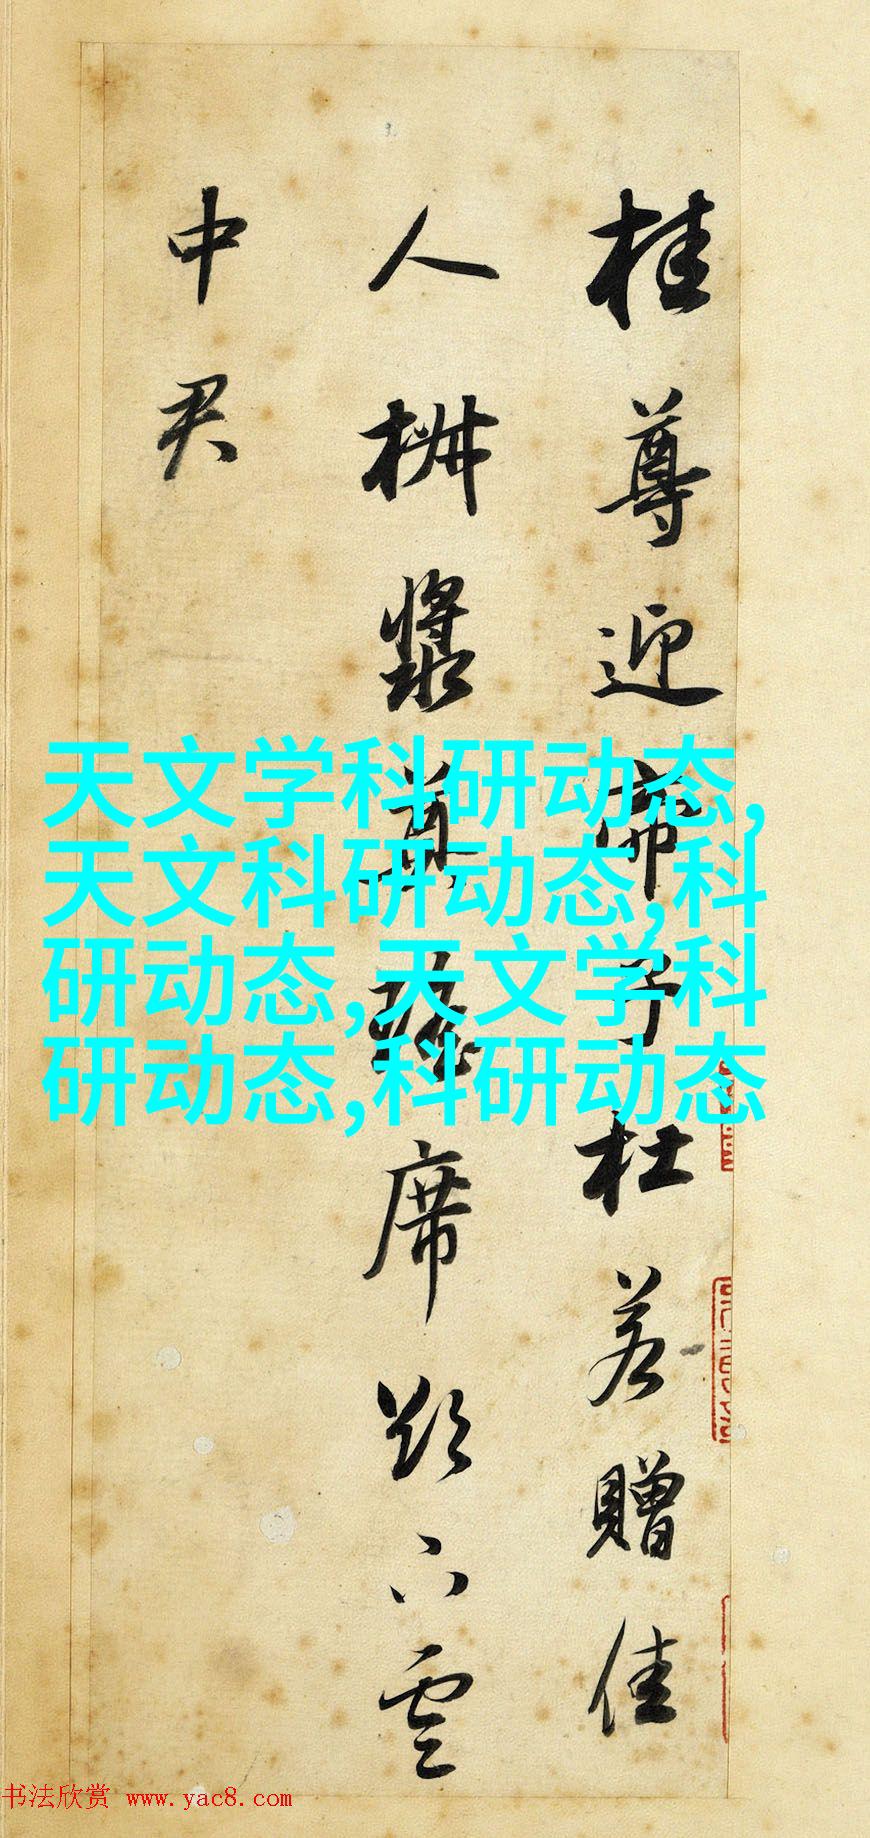 桂尊迎帝子杜若贈佳
人椒漿奠瑤席欲下雲
中君
天文学科研动态,
天文科研动态,科
研动态,天文学科
研动态,科研动态
书法欣赏 www.yac8.com